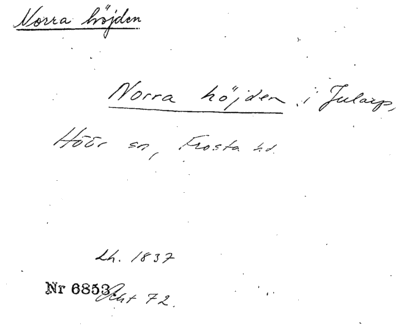 Norra höjden
Norra höjden i Jularp,
Höör sn, Frosta hd.
Lh. 1837
Nr 6853 Akt 72.